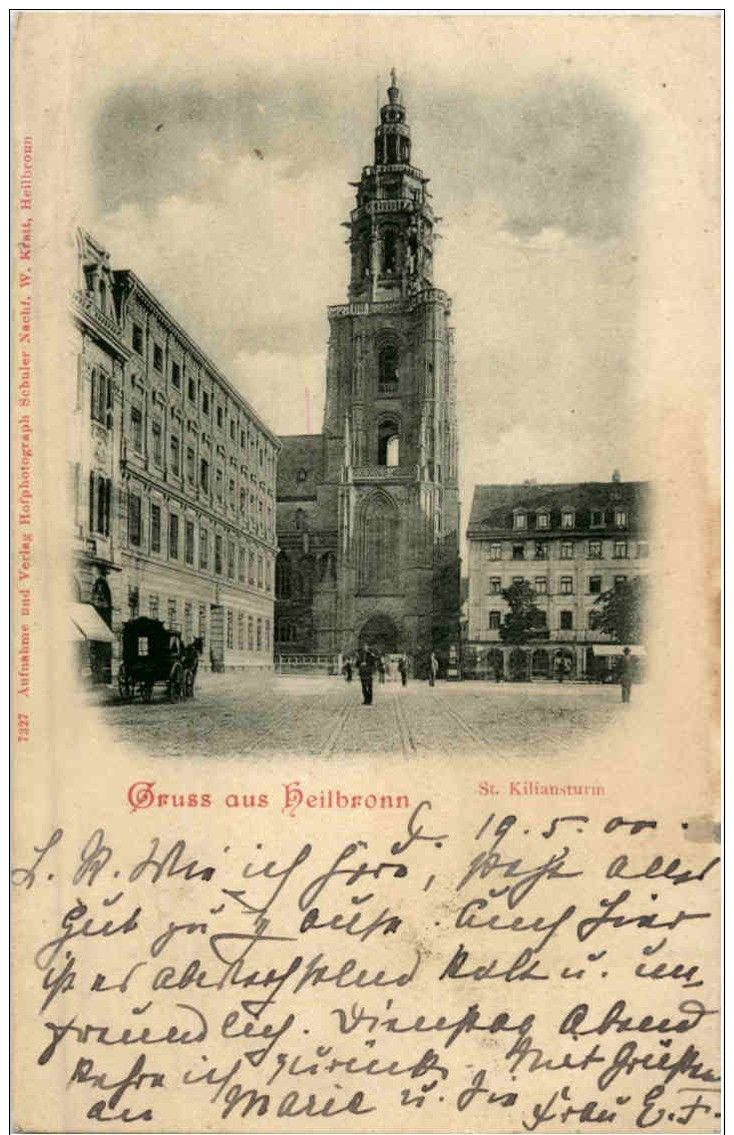 7327 Aufnahme und Verlag Hofphotograph Schuler Nachf. W. Kratt, Heilbronn
Gruss aus Heilbronn
St. Kiliansturm
d. 19.5.00.
L. R. Wie ich höre, steht alles
gut zu Hause. Auch hier
ist es abwechselnd kalt u. un
freundlich. Dienstag Abend
kehre ich zurück. Mit Grüßen
an Marie u. Sie Frau E. F.